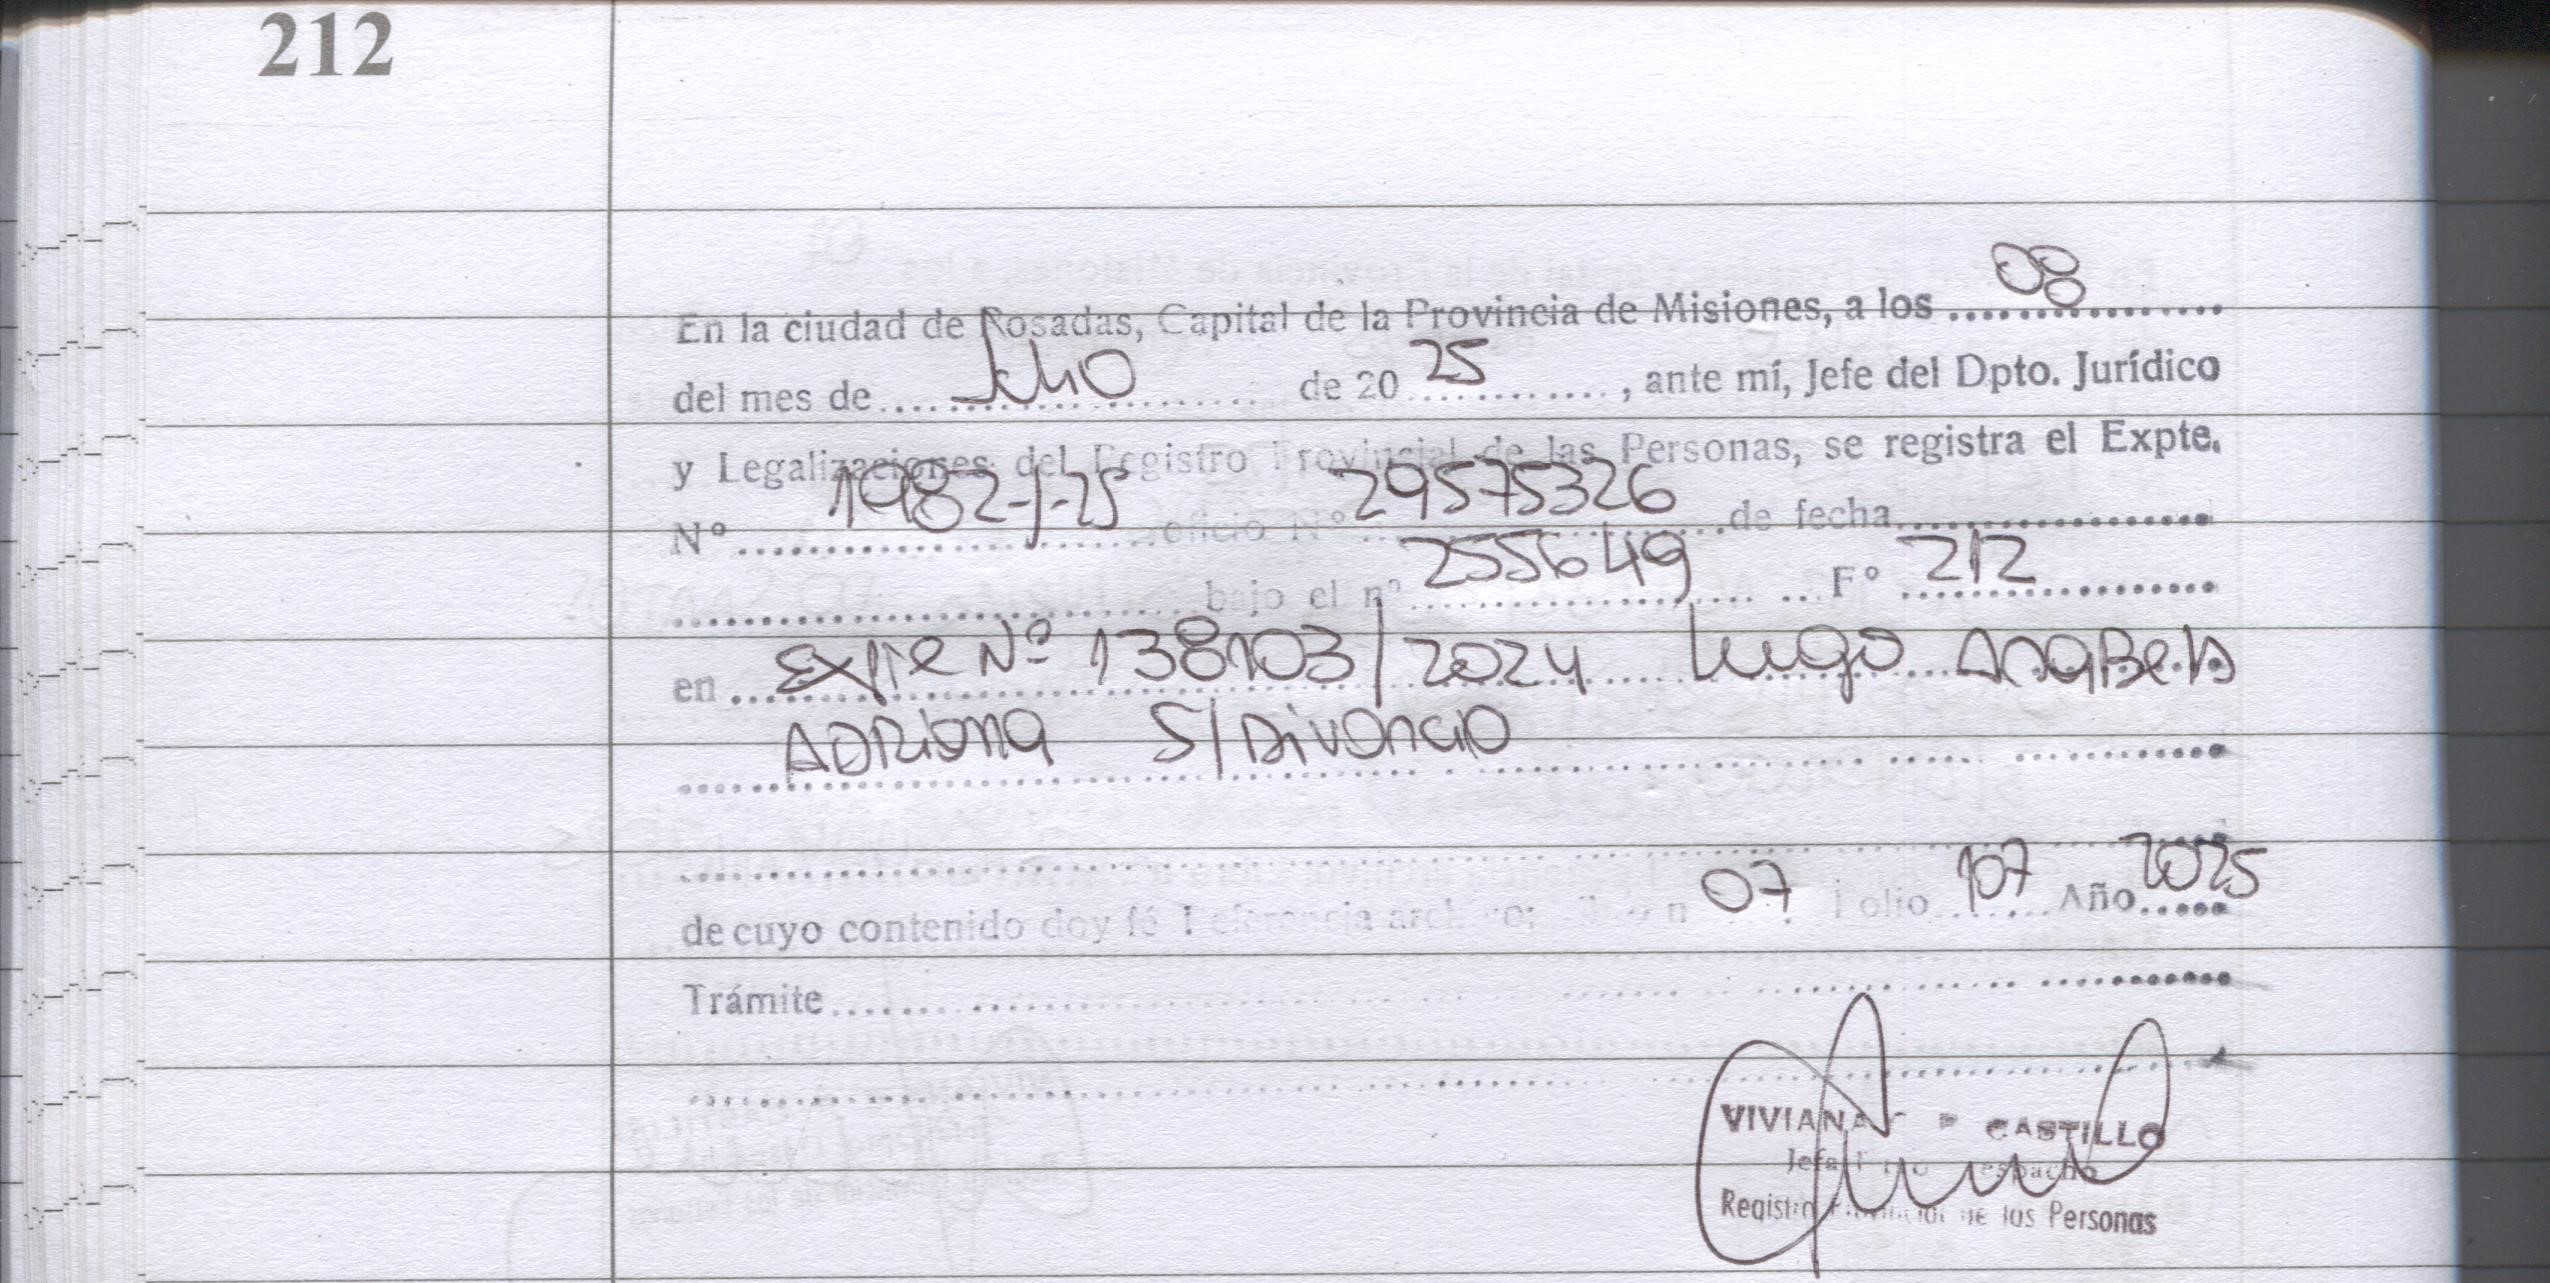 212
En la ciudad de Posadas, Capital de la Provincia de Misiones, a los 08
del mes de Julio de 20 25, ante mí, Jefe del Dpto. Jurídico
y Legalizaciones del Registro Provincial de las Personas, se registra el Expte.
Nº 1982-J-25 oficio Nº 29575326 de fecha
bajo el nº 255649 Fº 212
en Expte Nº 138103/2024 Lugo Anabela
Adriana S/Divorcio
de cuyo contenido doy fé Referencia archivo: 07 Folio 107 Año 2025
Trámite
VIVIANA CASTILLO
Jefa Despacho
Registro Provincial de las Personas